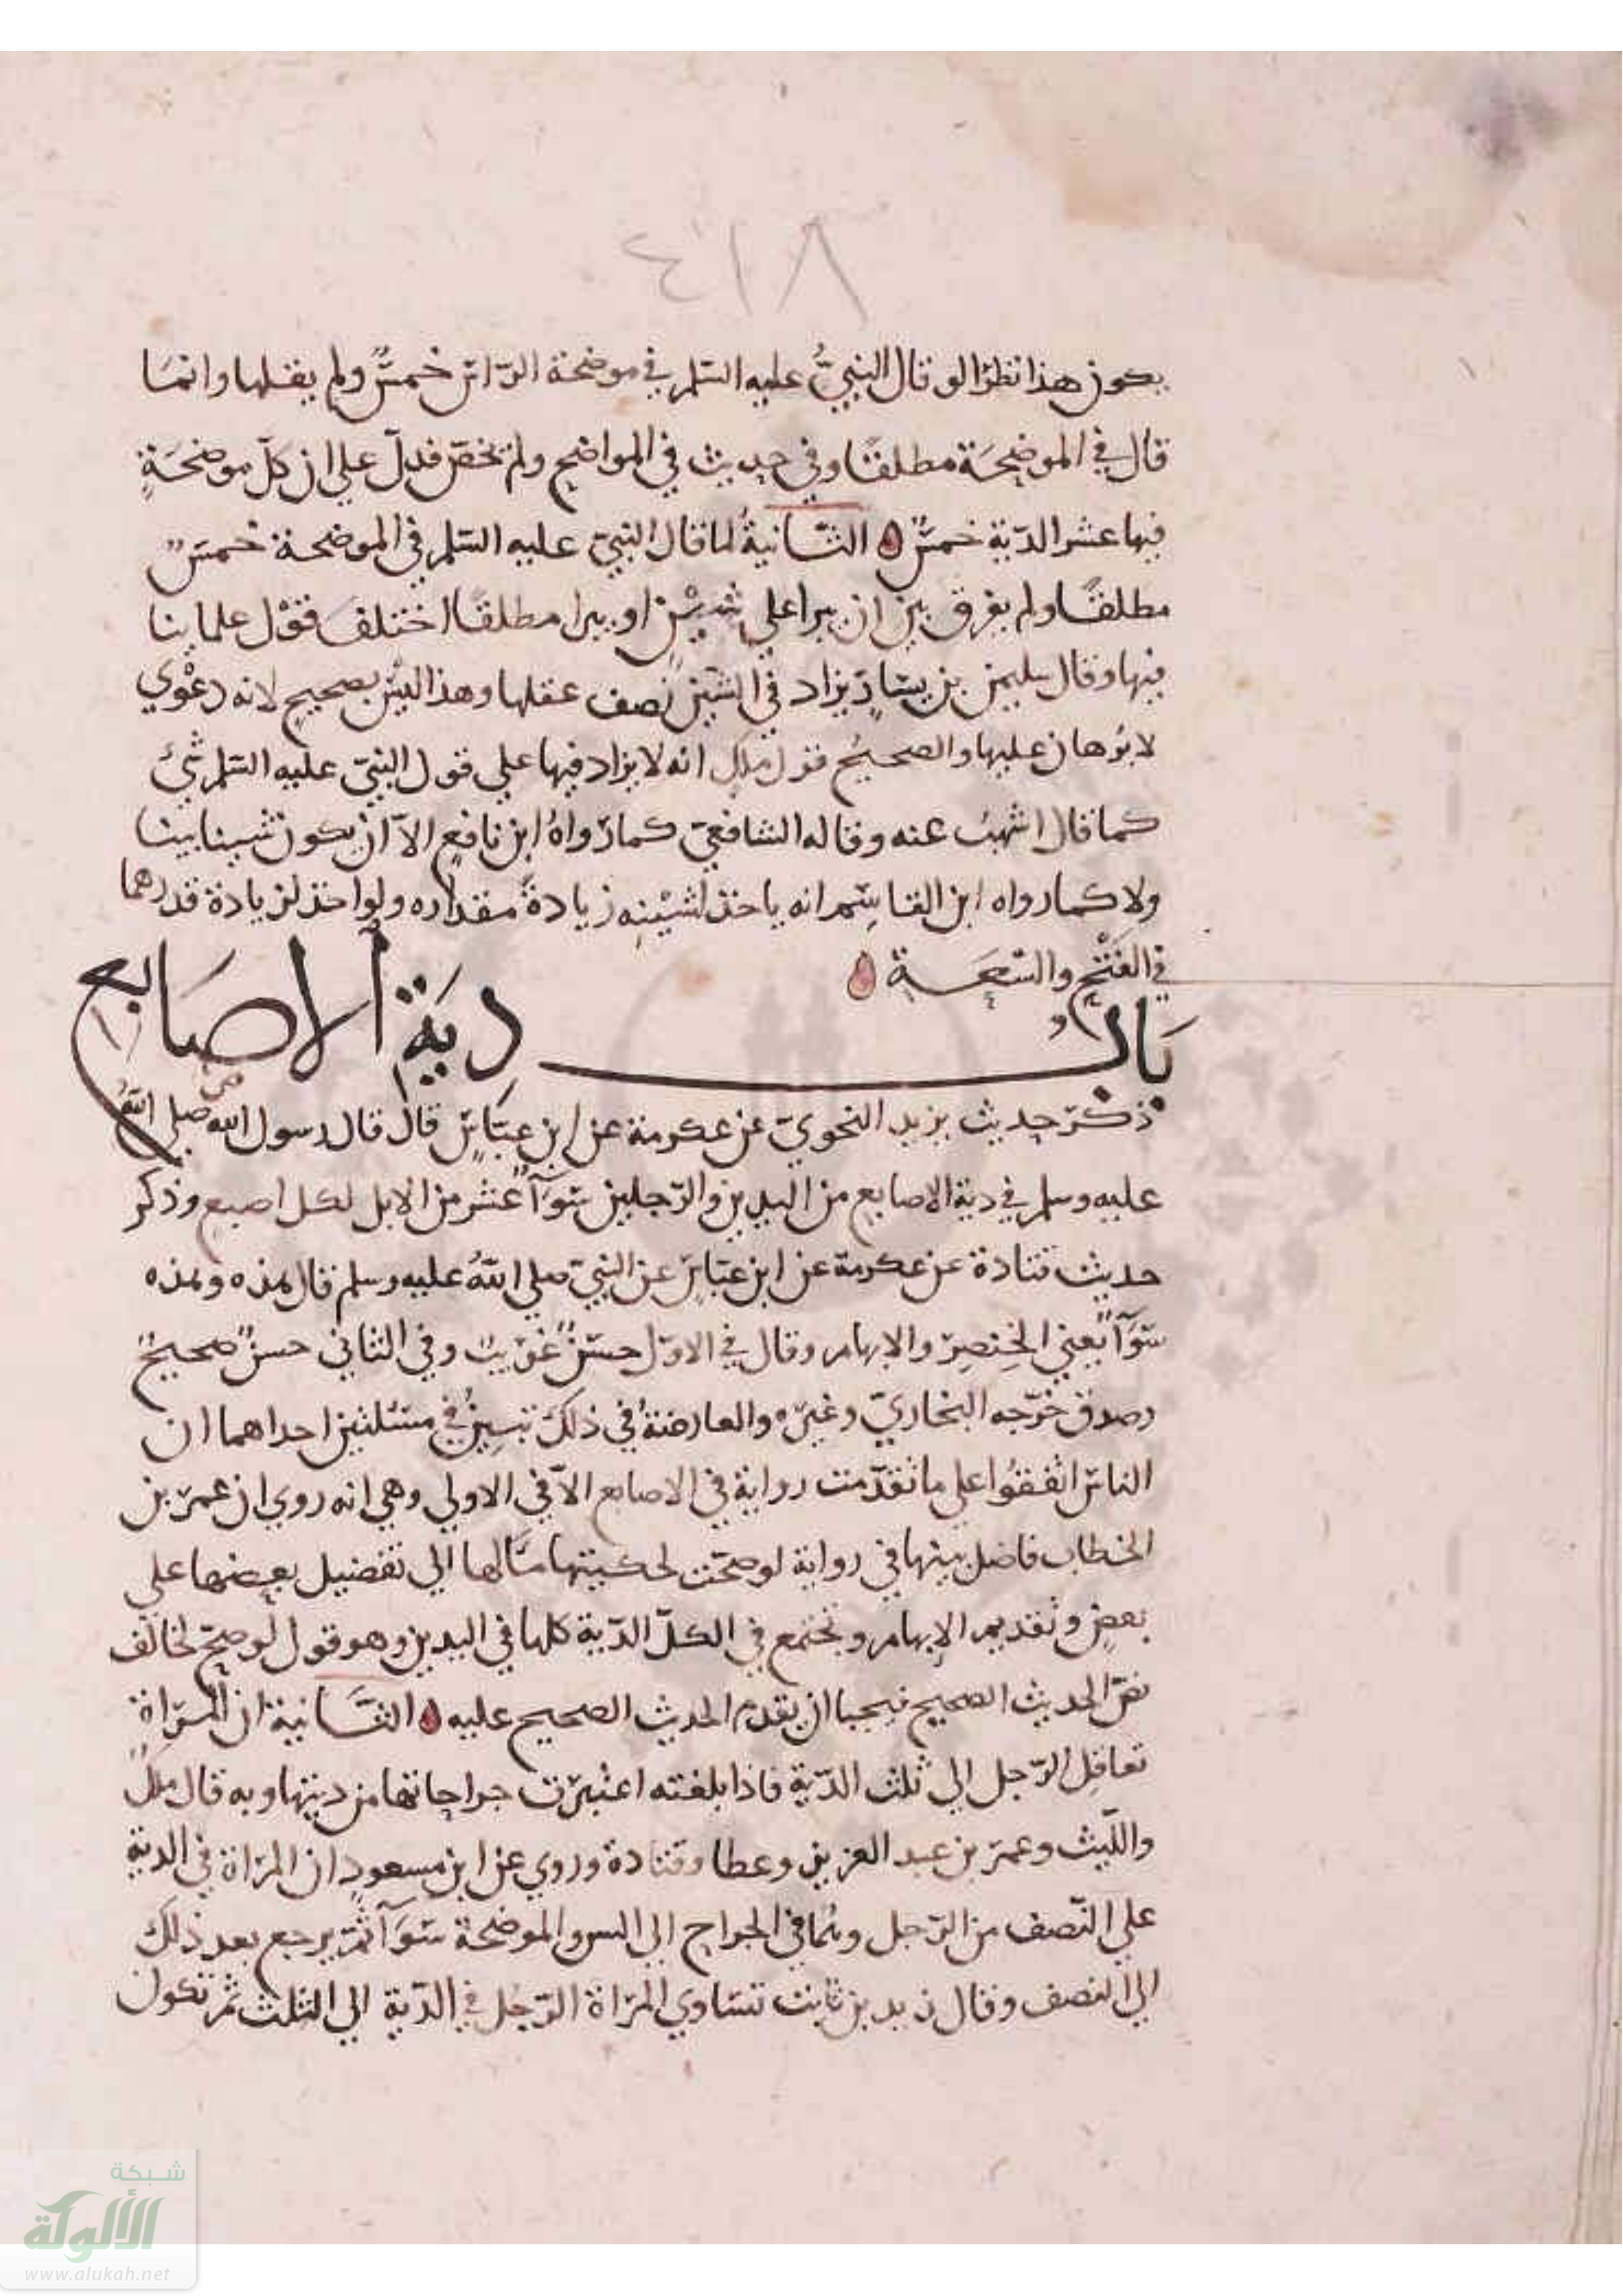 ٨١٤
يكون هذا نظرا لو قال النبيُّ عليه السّلم في موضحة الرّاس خمسٌ ولم يقلها وانمَا
قال في الموضِحَة مطلقًا وفي حديث في المواضح ولم يخصّ فدلّ علي ان كلّ موضحَةٍ
فيها عشر الدّية خمسٌ الثّانيةُ لما قال النبيّ عليه السّلم في الموضحة خمسٌ
مطلقًا ولم يفرق بين ان يبرا علي شَيْنٍ او يبرا مطلقًا اختلفَ قوْل علماينا
فيها وقال سليمن بن يسَارٍ يزاد في الشّين نصف عقلها وهذا ليس بصحيحٍ لانه دعْوي
لا برْهان عليها والصحيحُ قول ملك انه لا يزاد فيها علي قول النبيّ عليه السّلم شيْ
كما قال اشهبُ عنه وقاله الشافعيّ كما رّواهُ ابن نافعٍ الاّ ان يكون شينا بينا
ولا كما رواه ابن القاسِم انه ياخذ لشيْنِه زيادةً مقداره ولو اخذ لزيادة قدرهما
في الفَتْحِ والسّعَة
بَابُ دِيَة الاصَابع
ذكرَ حديث يزيد النحويّ عن عكرمة عن ابن عبّاسٍ قال قال رسول الله صلي اللهُ
عليه وسلم في دية الاصابع من اليدين والرّجلين سَوَآً عشر من الابل لكل اصبع وذكر
حديث قتادة عن عكرمة عن ابن عبّاسٍ عن النبيّ صلي اللهُ عليه وسلم قال هذه وهذه
سَوَآً يعني الخِنصِرَ والابهام وقال في الاوّل حسَنٌ غريبٌ وفي الثاني حسنٌ صحيحٌ
وصدق خرّجه البخاريّ وغيره والعارضةُ في ذلك تبِين في مسْئلتين احداهما ان
الناس اتفقُوا علي ما تقدّمت رواية في الاصابع الاّ في الاولي وهي انه روي ان عمرَ بن
الخطاب فاضل بينها في رواية لو صحّت لحكيتها مَالها الي تفضيل بعضها علي
بعضٍ وتقديم الابهام وتجتمع في الكلّ الدّية كلها في اليدين وهو قول لو صحّ لخالف
نصّ الحديث الصحيح فيجب ان يقدم الحدث الصحيح عليه الثّانية ان المَرْاة
تعاقِل الرّجل الي ثلث الدّية فاذا بلغته اعتبرت جراحاتها من ديتها وبه قال ملكٌ
واللّيث وعمرَ بن عبد العزيز وعطا وقتادة وروي عن ابن مسعودٍ ان المرْاة في الدية
علي النّصف من الرّجل وهُما في الجراح الي السن والموضحة سَوَآً ثمّ يرجع بعد ذلك
الي النصف وقال زيد بن ثابت تسَاوي المرْاة الرّجُل في الدّية الي الثلث ثمّ تكون
شبكة
الألوكة
www.alukah.net